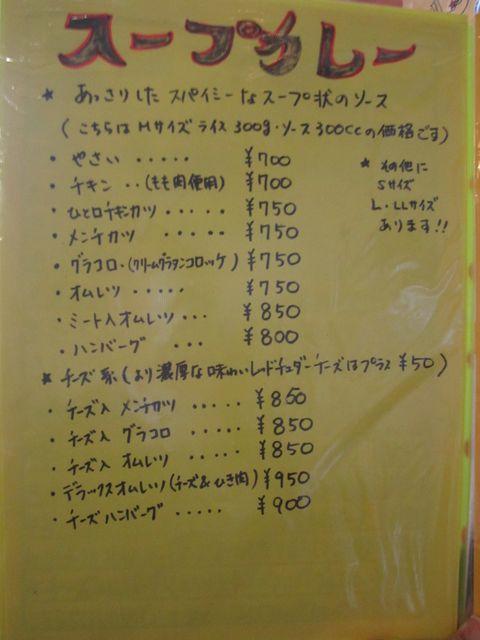 スープカレー
★ あっさりした スパイシーなスープ状のソース
(こちらは Mサイズ ライス 300g・ソース 300ccの価格です)
・ やさい ・・・・・ ¥700
・ チキン ・・(もも肉使用) ¥700
・ ひと口チキンカツ ・・・・・ ¥750
・ メンチカツ ・・・・・ ¥750
・ グラコロ・(クリームグラタンコロッケ) ¥750
・ オムレツ ・・・・・ ¥750
・ ミート入オムレツ・・・ ¥850
・ ハンバーグ ・・・ ¥800
★ その他に
Sサイズ
L・LLサイズ
あります!!
★ チーズ系(より濃厚な味わいレッドチェダーチーズはプラス ¥50)
・ チーズ入 メンチカツ ・・・・・ ¥850
・ チーズ入 グラコロ ・・・・・ ¥850
・ チーズ入 オムレツ ・・・・・ ¥850
・デラックスオムレツ(チーズ&ひき肉) ¥950
・ チーズハンバーグ ・・・・・ ¥900